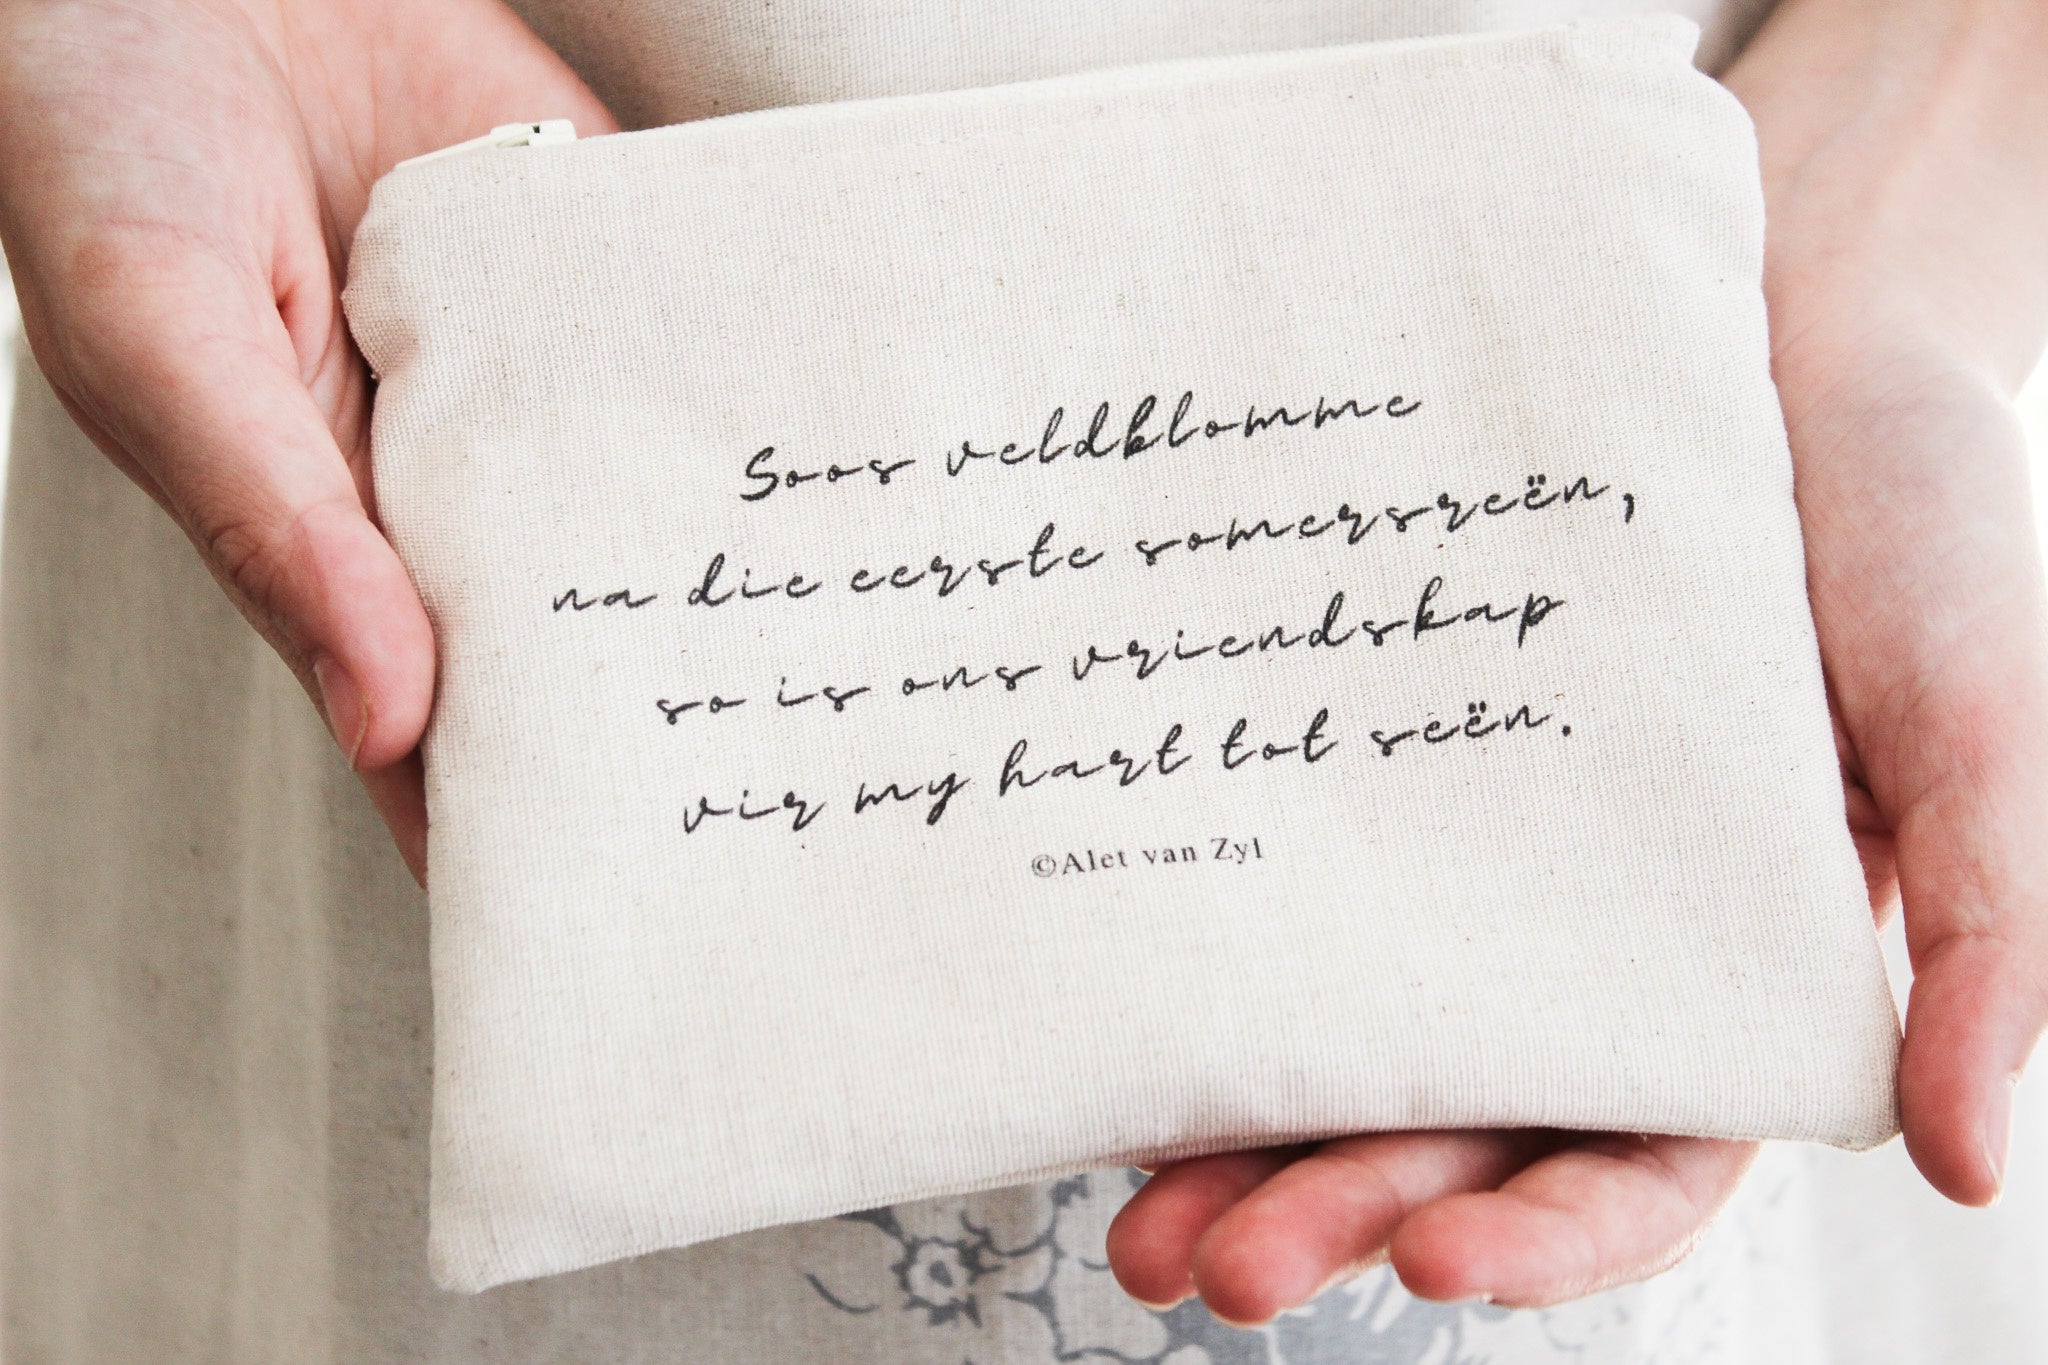 Soos veldblomme
na die eerste somersreën,
so is ons vriendskap
vir my hart tot seën.
©Alet van Zyl